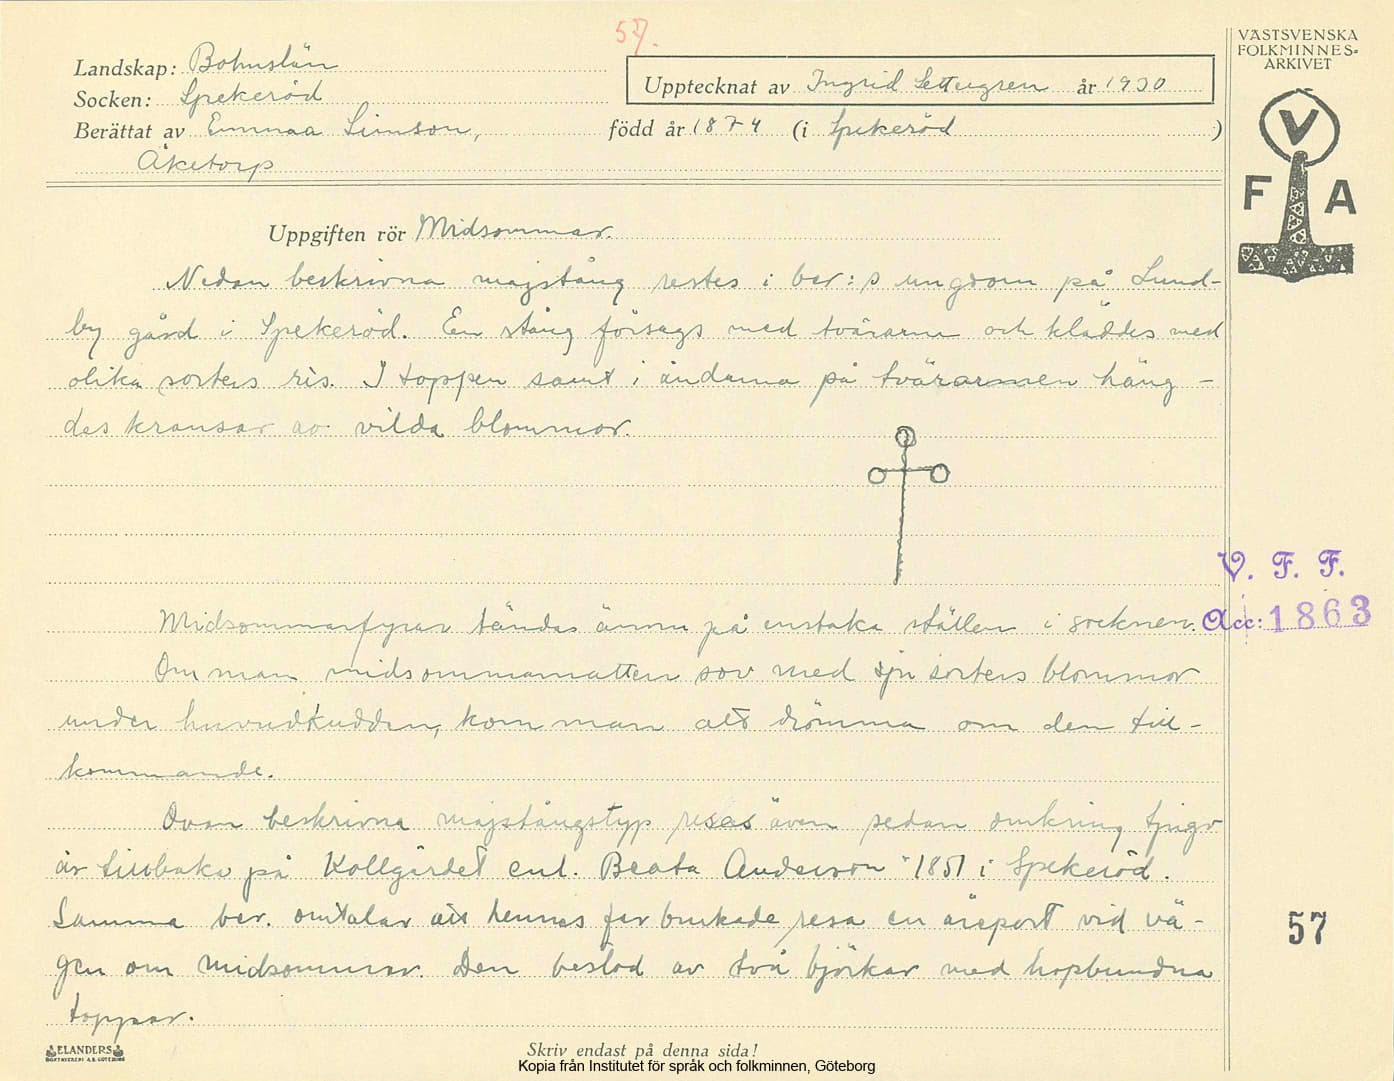 57.
VÄSTSVENSKA
FOLKMINNES-
ARKIVET
Landskap: Bohuslän
Upptecknat av Ingrid Settergren år 1930
Socken: Spekeröd
Berättat av Emma Simson, född år 1874 (i Spekeröd )
Åketorp
V
F A
Uppgiften rör Midsommar.
Nedan beskrivna majstång restes i ber:s ungdom på Lund-
by gård i Spekeröd. En stång försågs med tvärarm och kläddes med
olika sorters ris. I toppen samt i ändarna på tvärarmen häng-
des kransar av vilda blommor.
V. F. F.
Acc: 1863
Midsommarfyrar tändas ännu på enstaka ställen i socknen.
Om man midsommarnatten sov med sju sorters blommor
under huvudkudden, kom man att drömma om den till-
kommande.
Ovan beskrivna majstångstyp reses även sedan omkring tjugo
år tillbaka på Kollgärdet enl. Beata Anderson 1851 i Spekeröd.
Samma ber. omtalar att hennes far brukade resa en äreport vid vä-
gen om midsommar. Den bestod av två björkar med hopbundna
toppar.
57
ELANDERS
BOKTRYCKERI A.B. GÖTEBORG
Skriv endast på denna sida!
Kopia från Institutet för språk och folkminnen, Göteborg